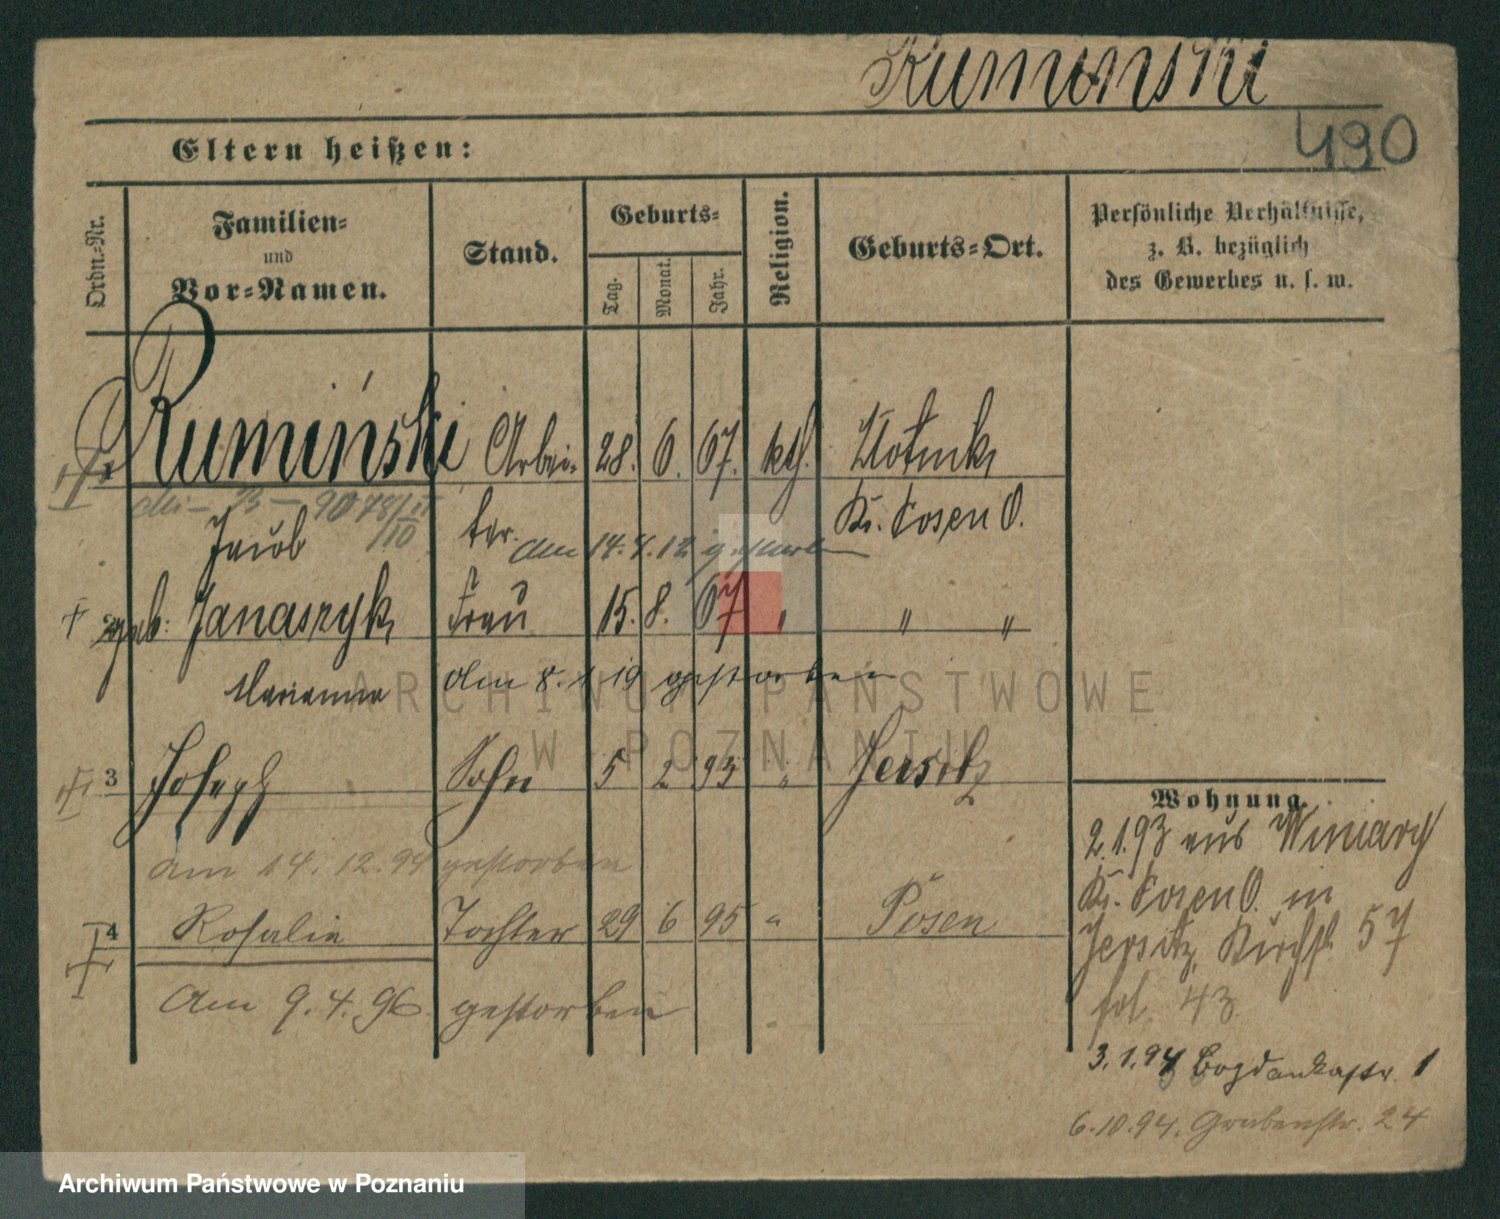 Ruminski
490
Eltern heißen:
Ordn.-Nr.
Familien-
und
Vor-Namen.
Stand.
Geburts-
Tag.
Monat.
Jahr.
Religion.
Geburts-Ort.
Persönliche Verhältnisse,
z. B. bezüglich
des Gewerbes u. s. w.
Rumiński Arbei- 28. 6. 67. kth. Zlotnik
Jacob ter. Kr. Posen O.
am 14.4.12 gestorben
2 geb: Janaszyk, Frau 15. 8. 67 " " "
Marianna am 8.1.19 gestorben
3 Joseph Sohn 5 2 93 " Jersitz
am 14.12.94 gestorben
4 Rosalie Tochter 29 6 95 " Posen
Am 9.4.96. gestorben
Wohnung.
2.1.93 aus Winiary
Kr. Posen O. in
Jersitz, Kirchst. 57
fol. 43
3.1.94 Bogdankastr. 1
6.10.94. Grabenstr. 24
ARCHIWUM PAŃSTWOWE
W POZNANIU
Archiwum Państwowe w Poznaniu